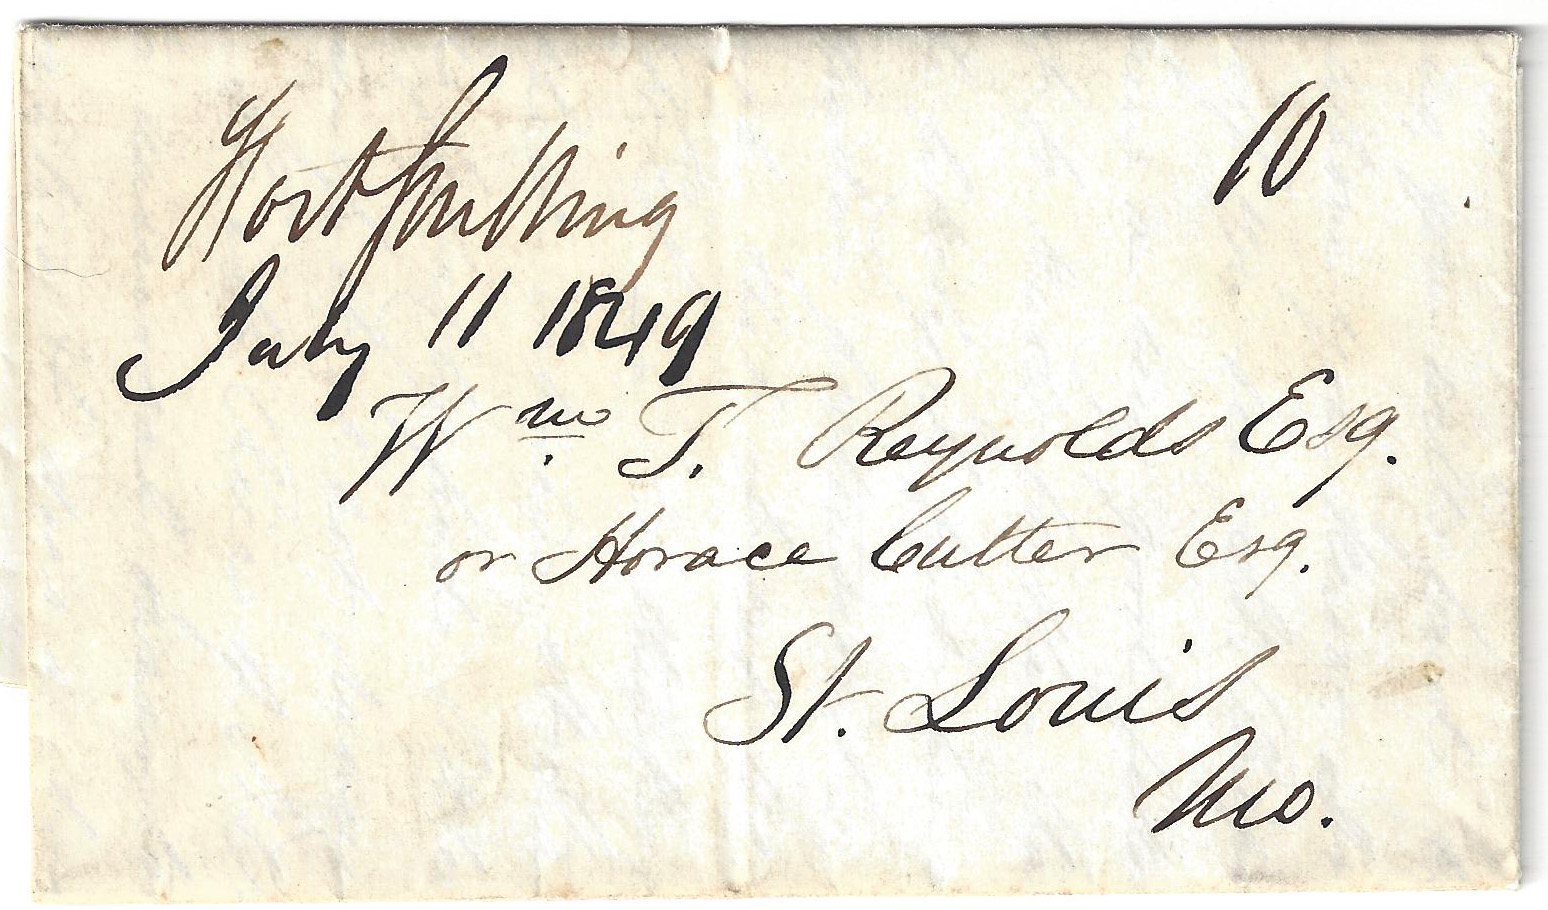 Fort Snelling
10
July 11 1849
Wm. T. Reynolds Esq.
or Horace Cutter Esq.
St. Louis
Mo.